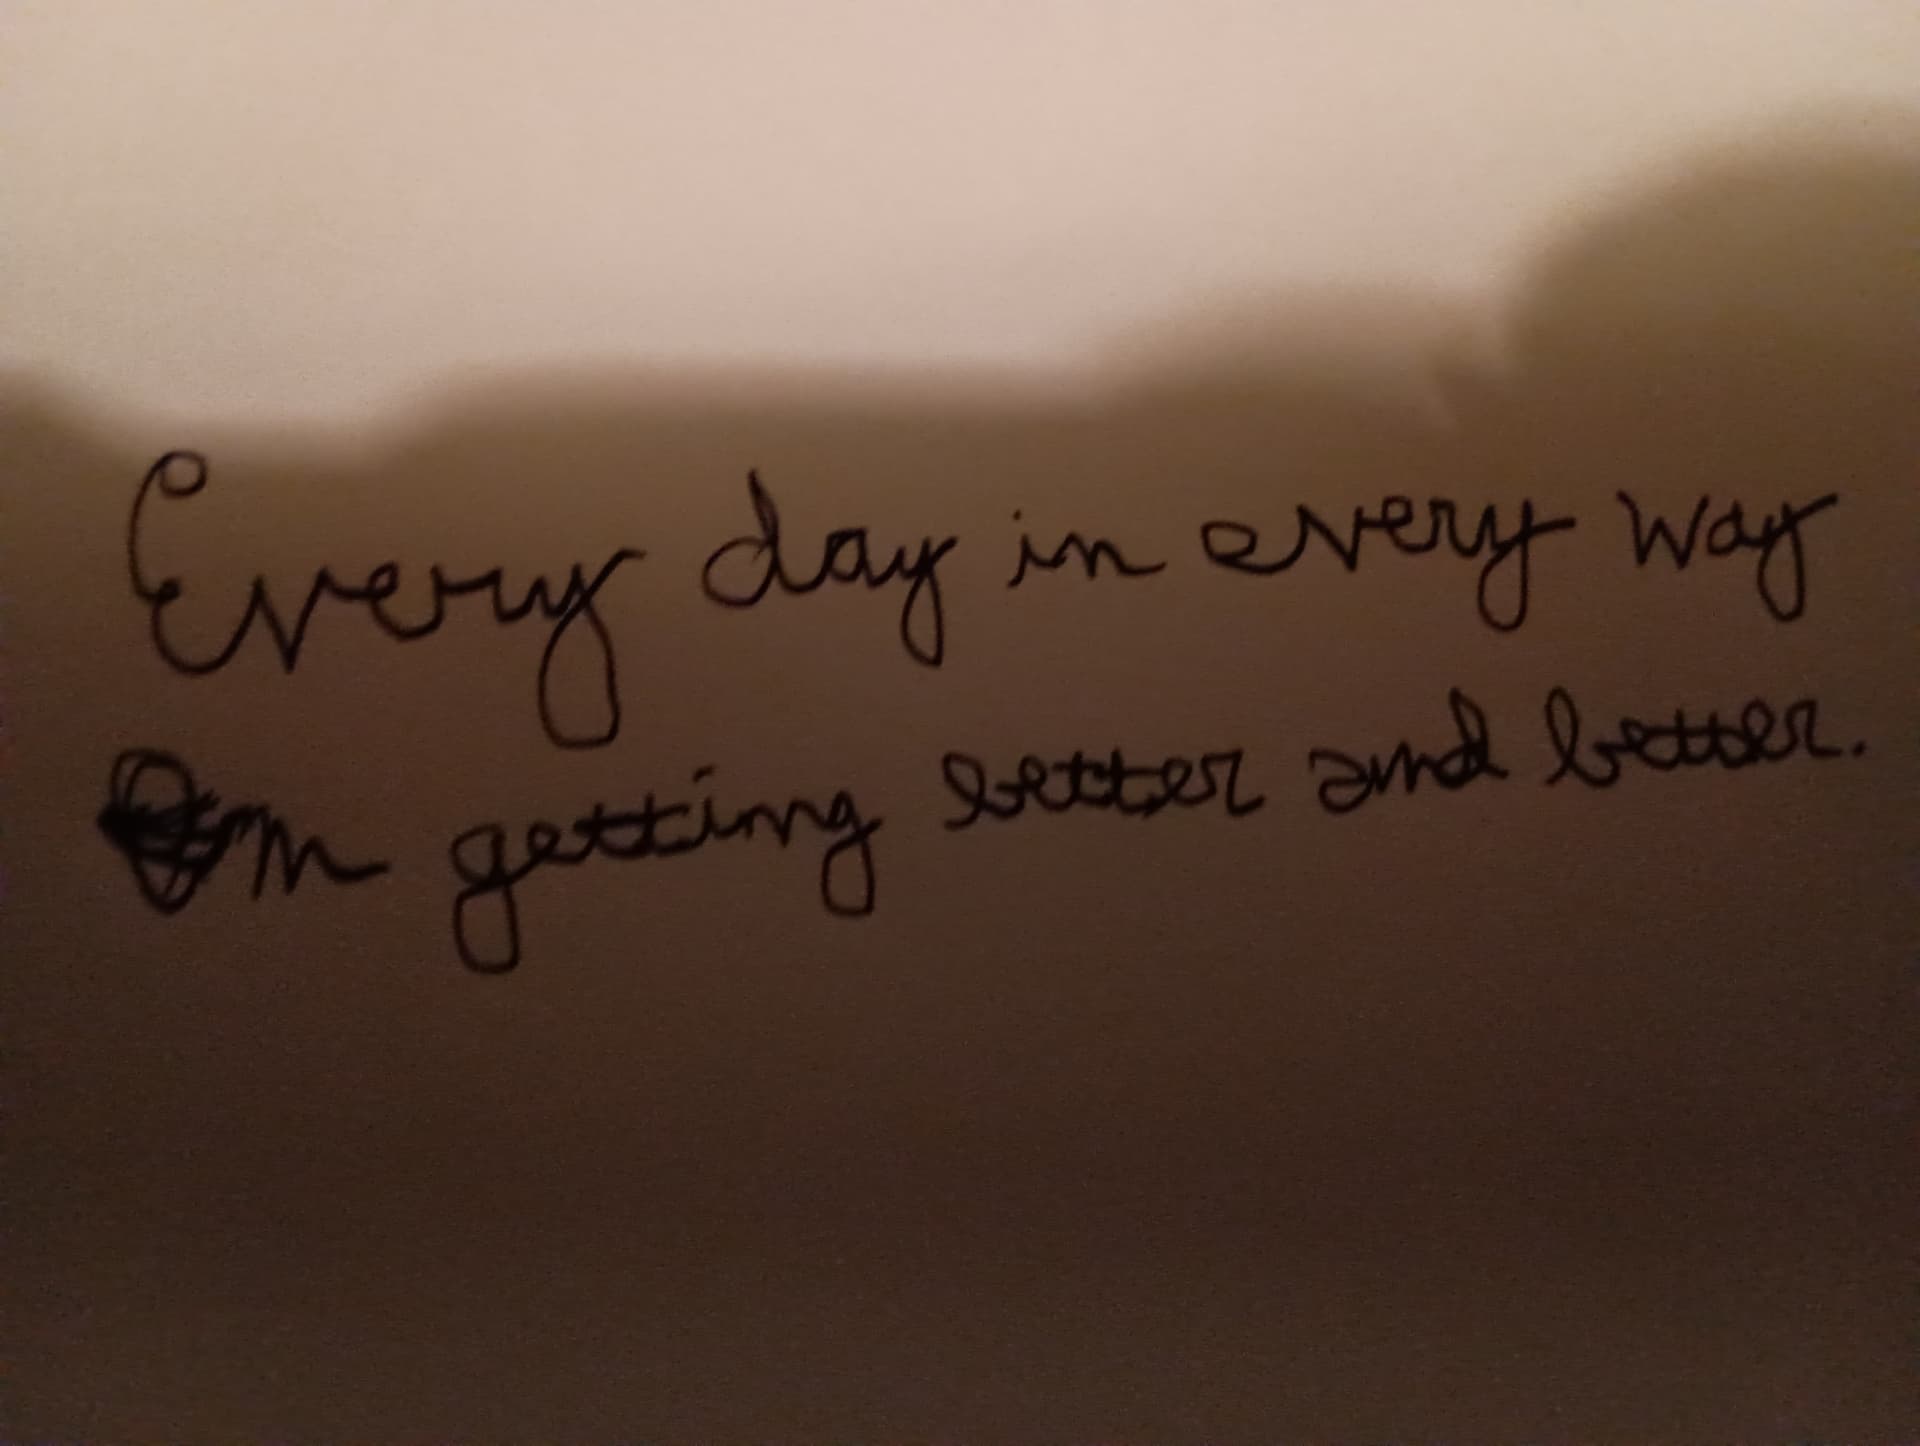 Every day in every way
I'm getting better and better.